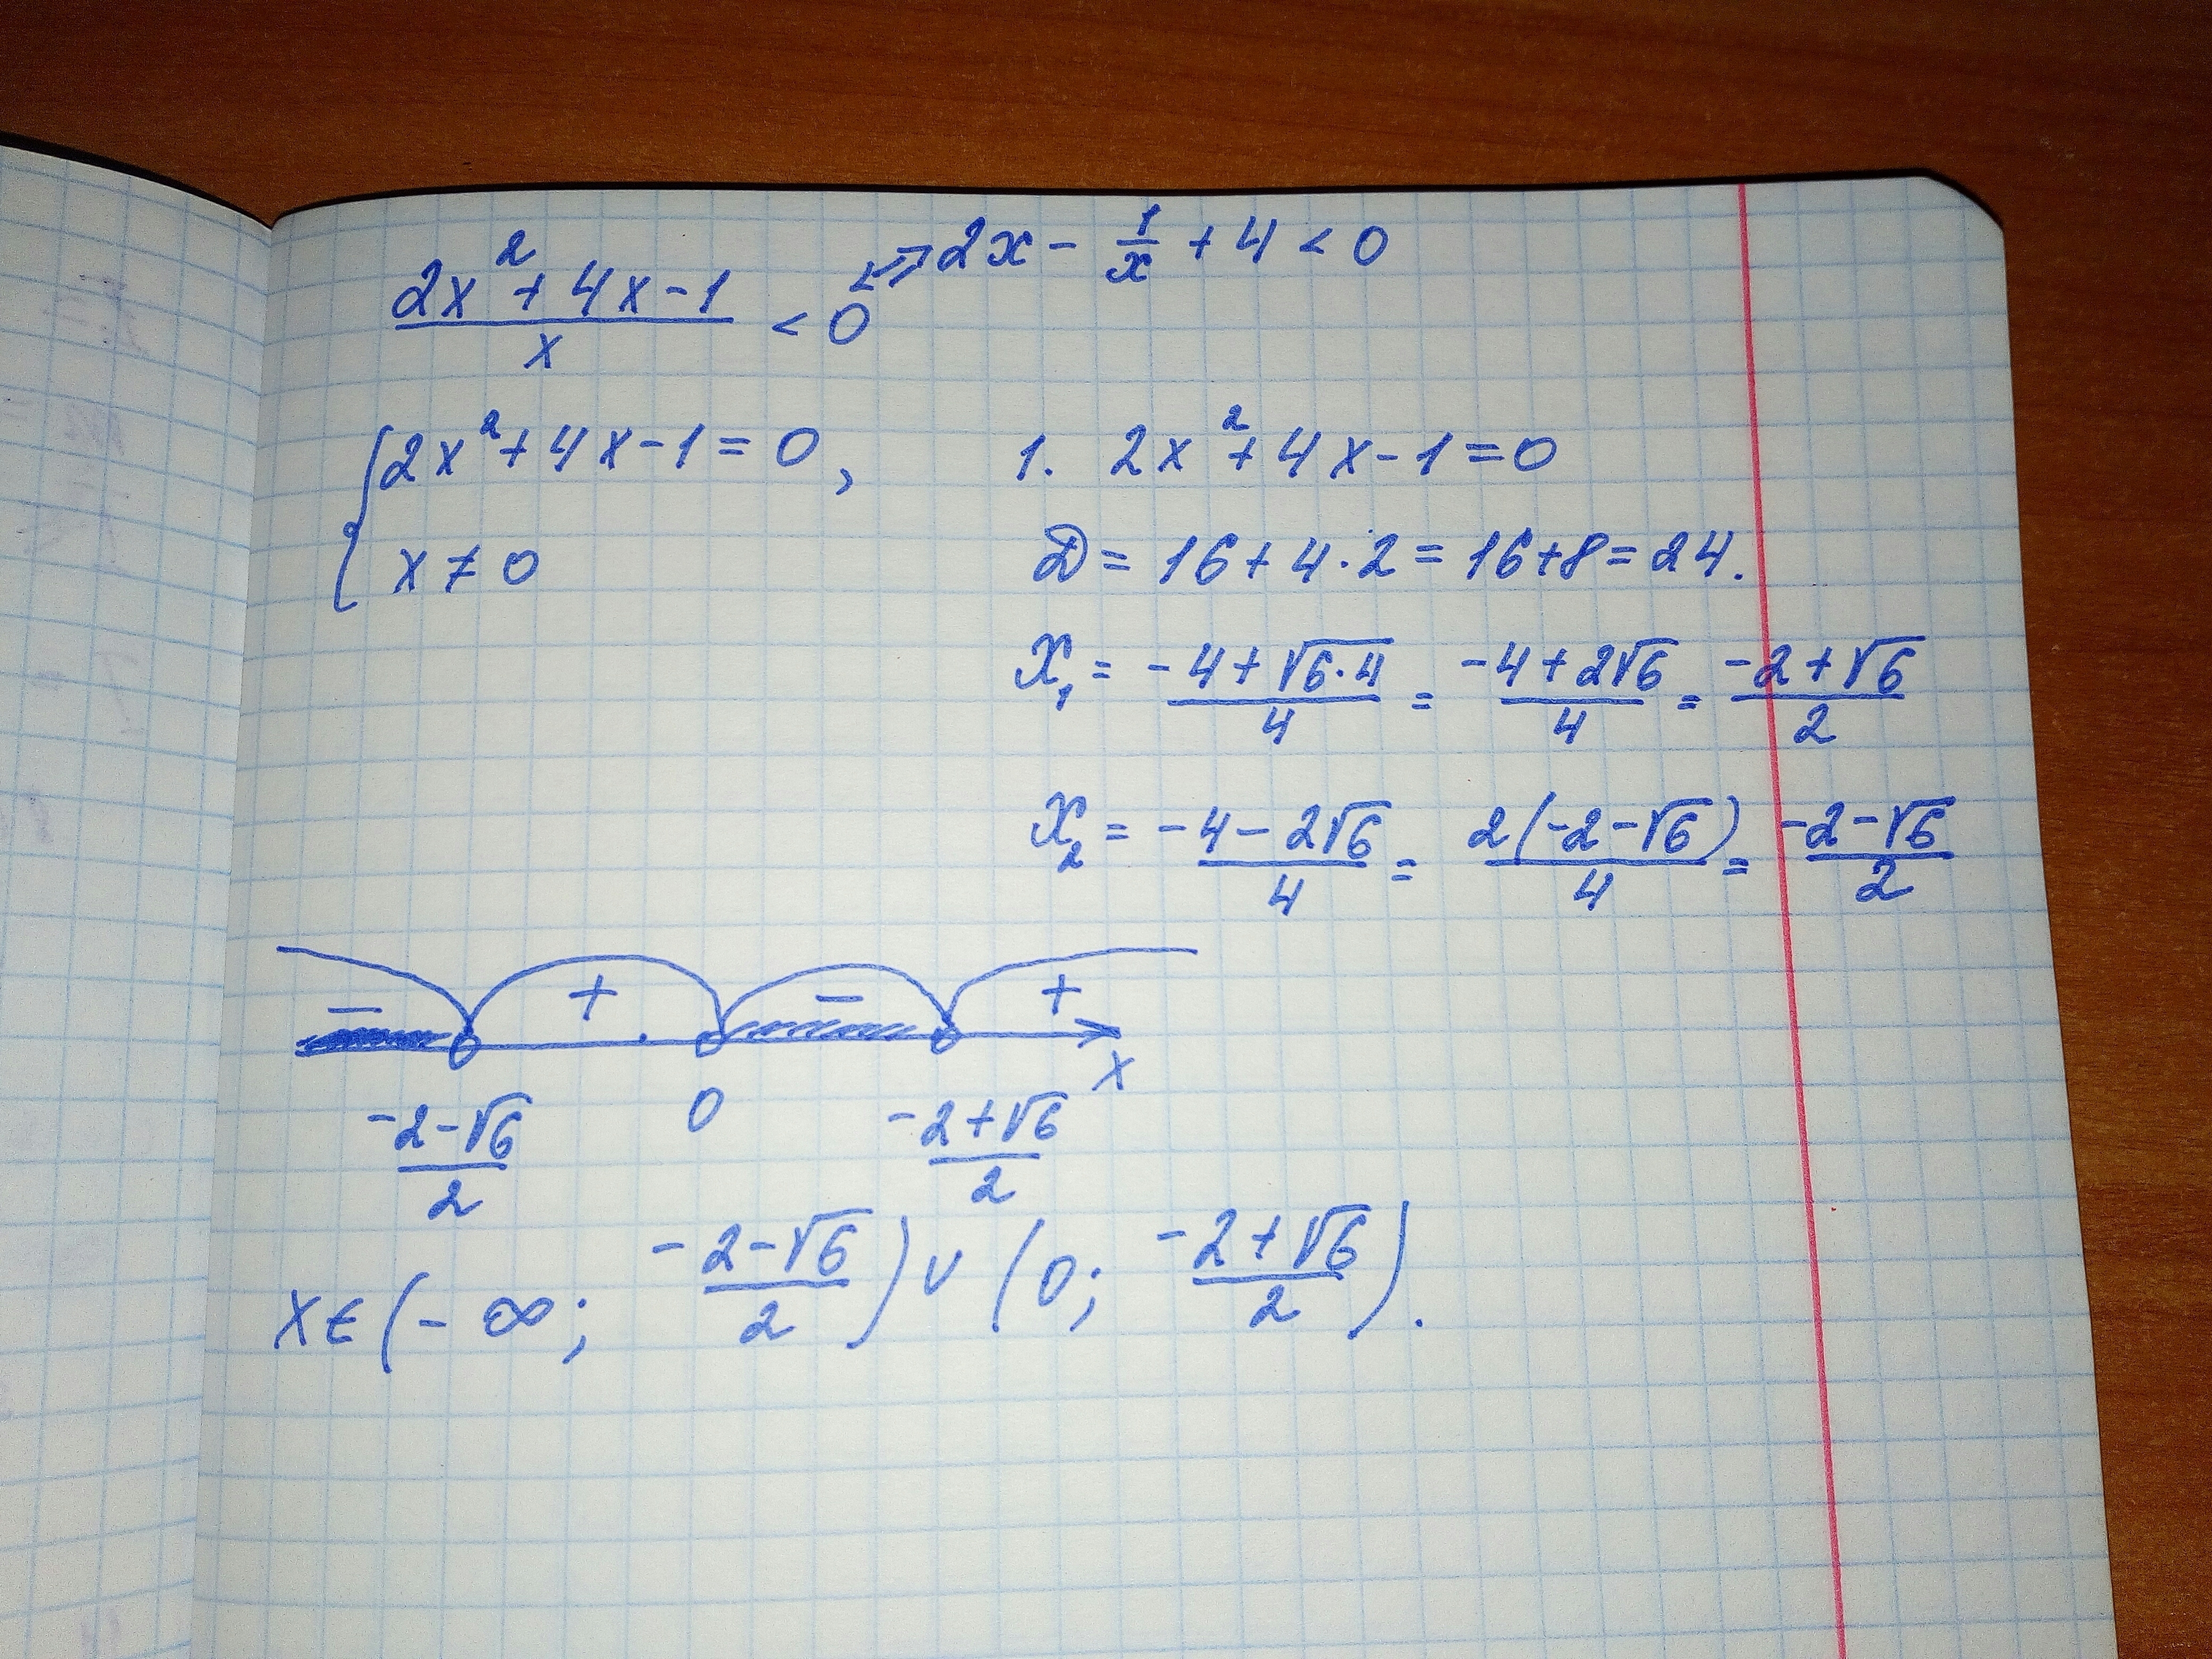 (2x² + 4x - 1)/x < 0 ⇔ 2x - 1/x + 4 < 0
{ 2x² + 4x - 1 = 0,
x ≠ 0
1. 2x² + 4x - 1 = 0
D = 16 + 4·2 = 16 + 8 = 24.
x₁ = (-4 + √(6·4))/4 = (-4 + 2√6)/4 = (-2 + √6)/2
x₂ = (-4 - 2√6)/4 = 2(-2 - √6)/4 = (-2 - √6)/2
- + - +
x
(-2 - √6)/2 0 (-2 + √6)/2
x ∈ (-∞; (-2 - √6)/2) ∪ (0; (-2 + √6)/2).